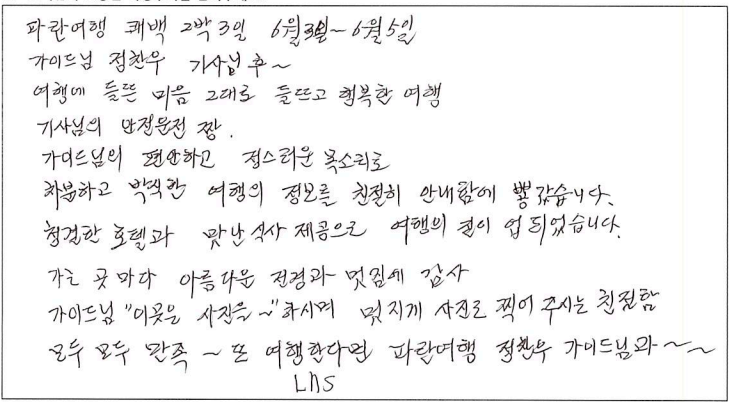 파란여행 퀘백 2박3일 6월3일~6월5일
가이드님 정찬우 기사님 후~
여행에 들뜬 마음 그대로 들뜨고 행복한 여행
기사님의 안전운전 짱.
가이드님의 편안하고 정스러운 목소리로
차분하고 박식한 여행의 정보를 친절히 안내함에 뿅갔습니다.
청결한 호텔과 맛난 식사 제공으로 여행의 질이 업 되었습니다.
가는 곳 마다 아름다운 전경과 멋짐에 감사
가이드님 "이곳은 사진을~" 하시며 멋지게 사진도 찍어 주시는 친절함
모두 모두 만족 ~ 또 여행한다면 파란여행 정찬우 가이드님과~~
LNS